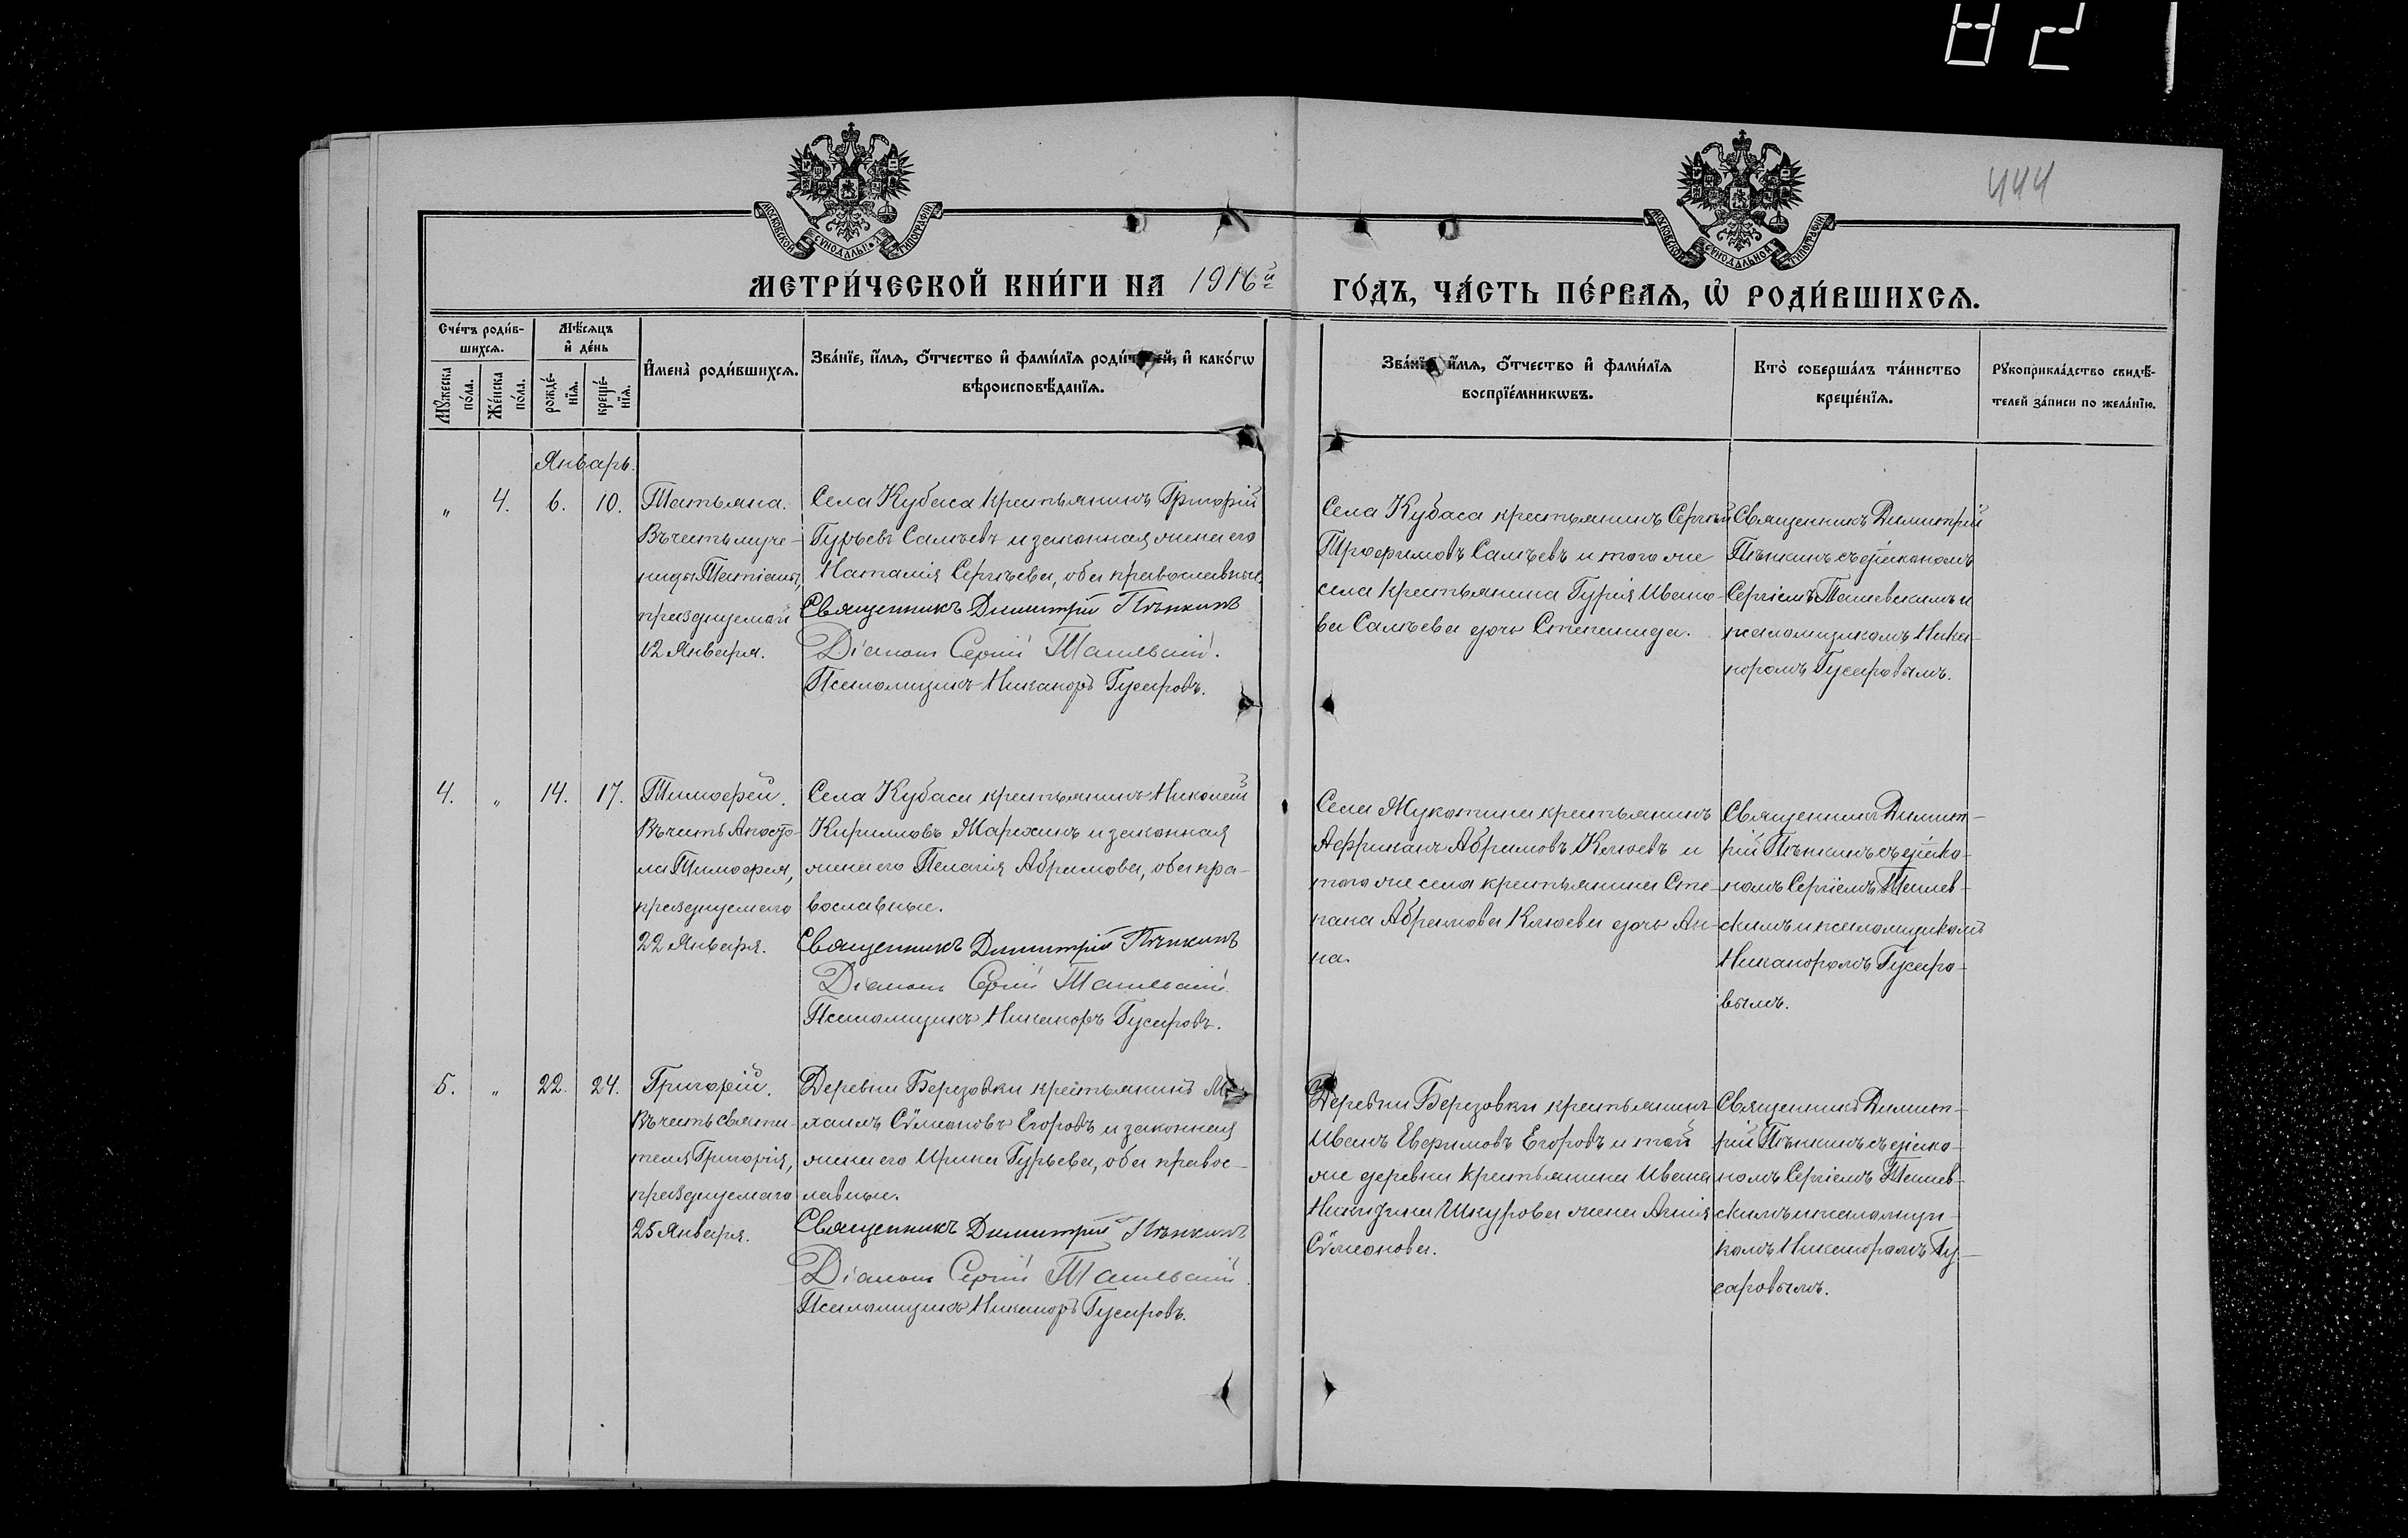 821
444
МОСКОВСКОЙ СѴНОДАЛЬНОЙ ТИПОГРАФІИ
МОСКОВСКОЙ СѴНОДАЛЬНОЙ ТИПОГРАФІИ
МЕТРИ́ЧЕСКОЙ КНИ́ГИ НА 1916й ГО́ДЪ, ЧА́СТЬ ПЕ́РВАѦ, Ѡ҆ РОДИ́ВШИХСѦ.
Сче́тъ роди́в-
шихсѧ.
Мѣ́сѧцъ
и҆ де́нь
Мꙋ́жеска
по́ла.
Же́нска
по́ла.
рожде́-
нїѧ.
креще́-
нїѧ.
И҆мена̀ роди́вшихсѧ.
Зва́нїе, и҆́мѧ, ѻ҆́тчество и҆ фами́лїѧ роди́телей, и҆ како́гѡ
вѣроисповѣ́данїѧ.
Зва́нїе, и҆́мѧ, ѻ҆́тчество и҆ фами́лїѧ
воспрїе́мникѡвъ.
Кто̀ соверша́лъ та́инство
креще́нїѧ.
Рꙋкоприкла́дство свидѣ́-
телей за́писи по жела́нїю.
Январь.
" 4. 6. 10.
Татьяна.
Въ честь муче-
ницы Татіаны,
празднуемой
12 Января.
Села Кубаса крестьянинъ Григорій
Гурьевъ Салѣевъ и законная жена его
Наталія Сергѣева, оба православные.
Священникъ Димитрій Пѣнкинъ
Діаконъ Сергій Ташевскій.
Псаломщикъ Никаноръ Гусаровъ.
Села Кубаса крестьянинъ Сергѣй
Трофимовъ Салѣевъ и того же
села крестьянина Гурія Ивано-
ва Салѣева дочь Степанида.
Священникъ Димитрій
Пѣнкинъ съ діакономъ
Сергіемъ Ташевскимъ и
псаломщикомъ Ника-
норомъ Гусаровымъ.
4. " 14. 17.
Тимофей.
Въ честь Апосто-
ла Тимофея,
празднуемаго
22 Января.
Села Кубаса крестьянинъ Николай
Кирилловъ Марихинъ и законная
жена его Пелагія Абрамова, оба пра-
вославные.
Священникъ Димитрій Пѣнкинъ
Діаконъ Сергій Ташевскій.
Псаломщикъ Никаноръ Гусаровъ.
Села Жукотина крестьянинъ
Африканъ Абрамовъ Клюевъ и
того же села крестьянина Сте-
пана Абрамова Клюева дочь Ан-
на.
Священникъ Димит-
рій Пѣнкинъ съ діако-
номъ Сергіемъ Ташев-
скимъ и псаломщикомъ
Никаноромъ Гусаро-
вымъ.
5. " 22. 24.
Григорій.
Въ честь святи-
теля Григорія,
празднуемаго
25 Января.
Деревни Березовки крестьянинъ Ми-
хаилъ Сѵмеоновъ Егоровъ и законная
жена его Ирина Гурьева, оба правос-
лавные.
Священникъ Димитрій Пѣнкинъ
Діаконъ Сергій Ташевскій.
Псаломщикъ Никаноръ Гусаровъ.
Деревни Березовки крестьянинъ
Иванъ Евфимовъ Егоровъ и той
же деревни крестьянина Ивана
Никитина Шкурова жена Агнія
Сѵмеонова.
Священникъ Димит-
рій Пѣнкинъ съ діако-
номъ Сергіемъ Ташев-
скимъ и псаломщи-
комъ Никаноромъ Гу-
саровымъ.